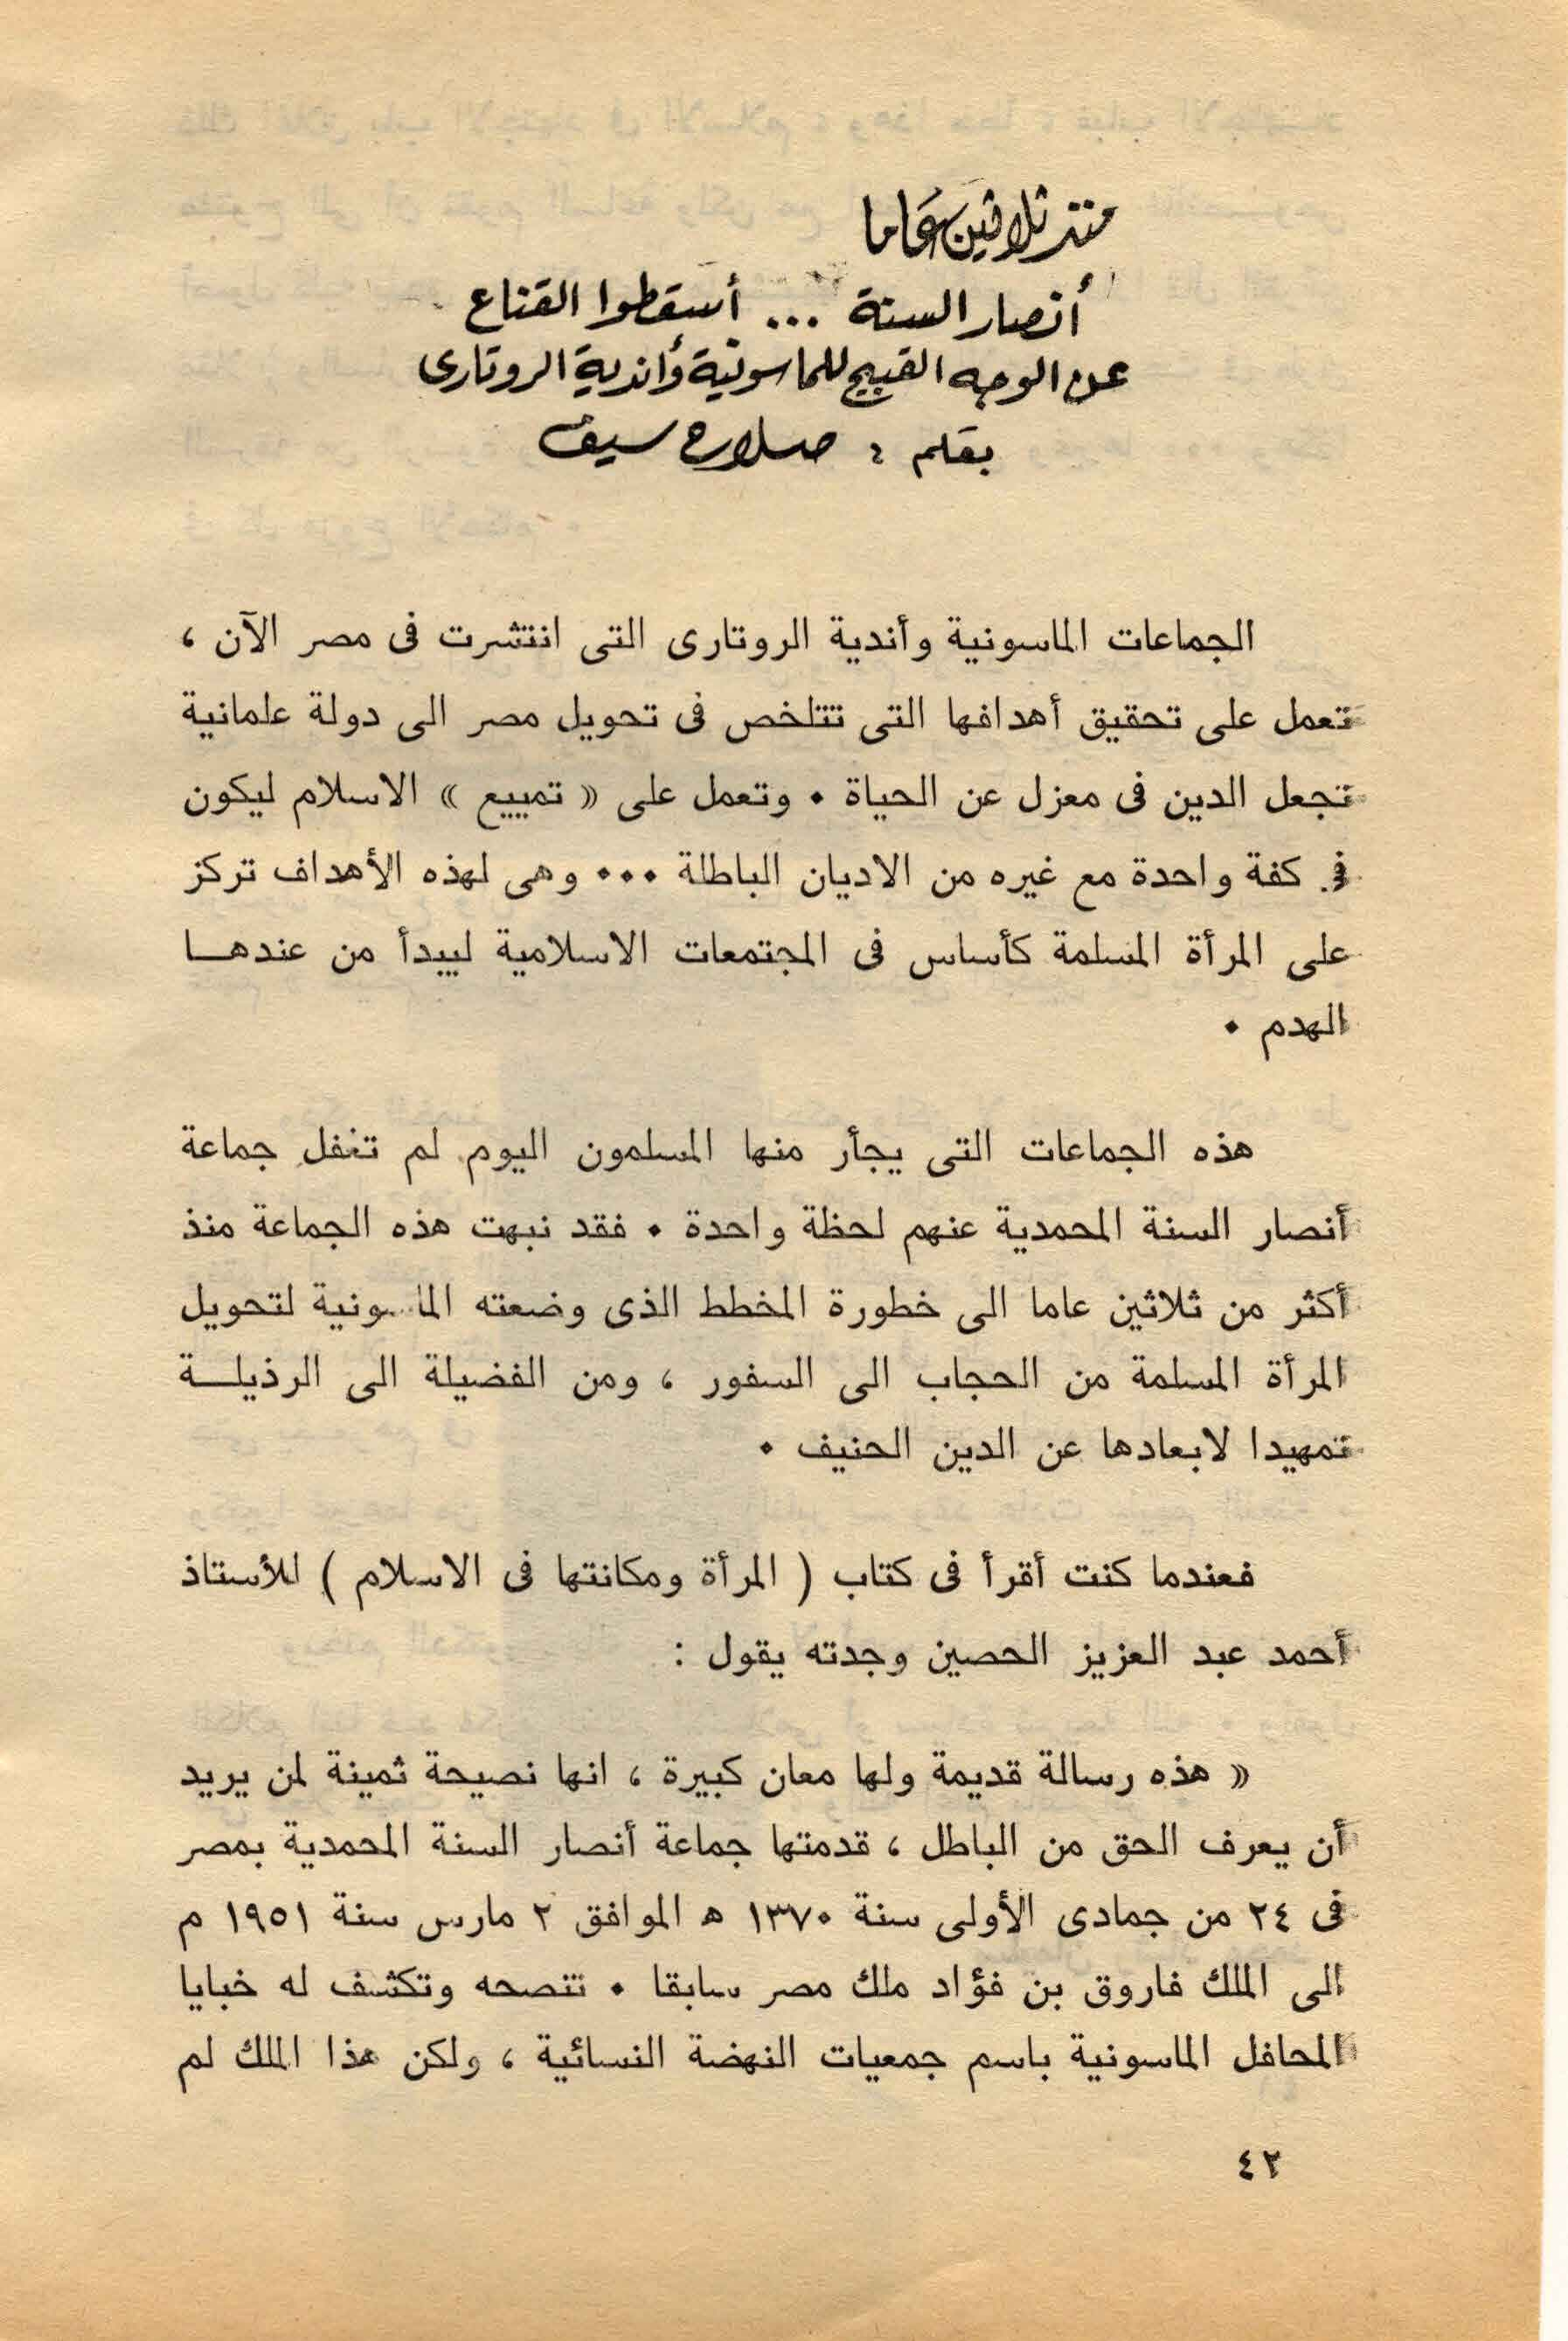 منذ ثلاثين عاما
أنصار السنة ... أسقطوا القناع
عن الوجه القبيح للماسونية وأندية الروتارى
بقلم : صلاح سيف
الجماعات الماسونية وأندية الروتارى التى انتشرت فى مصر الآن ،
تعمل على تحقيق أهدافها التى تتلخص فى تحويل مصر الى دولة علمانية
تجعل الدين فى معزل عن الحياة . وتعمل على « تمييع » الاسلام ليكون
فى كفة واحدة مع غيره من الاديان الباطلة ... وهى لهذه الأهداف تركز
على المرأة المسلمة كأساس فى المجتمعات الاسلامية ليبدأ من عندهـا
الهدم .
هذه الجماعات التى يجأر منها المسلمون اليوم لم تغفل جماعة
أنصار السنة المحمدية عنهم لحظة واحدة . فقد نبهت هذه الجماعة منذ
أكثر من ثلاثين عاما الى خطورة المخطط الذى وضعته الماسونية لتحويل
المرأة المسلمة من الحجاب الى السفور ، ومن الفضيلة الى الرذيلـة
تمهيدا لابعادها عن الدين الحنيف .
فعندما كنت أقرأ فى كتاب ( المرأة ومكانتها فى الاسلام ) للأستاذ
أحمد عبد العزيز الحصين وجدته يقول :
« هذه رسالة قديمة ولها معان كبيرة ، انها نصيحة ثمينة لمن يريد
أن يعرف الحق من الباطل ، قدمتها جماعة أنصار السنة المحمدية بمصر
فى ٢٤ من جمادى الأولى سنة ١٣٧٠ ه الموافق ٢ مارس سنة ١٩٥١ م
الى الملك فاروق بن فؤاد ملك مصر سابقا . تنصحه وتكشف له خبايا
المحافل الماسونية باسم جمعيات النهضة النسائية ، ولكن هذا الملك لم
٤٢